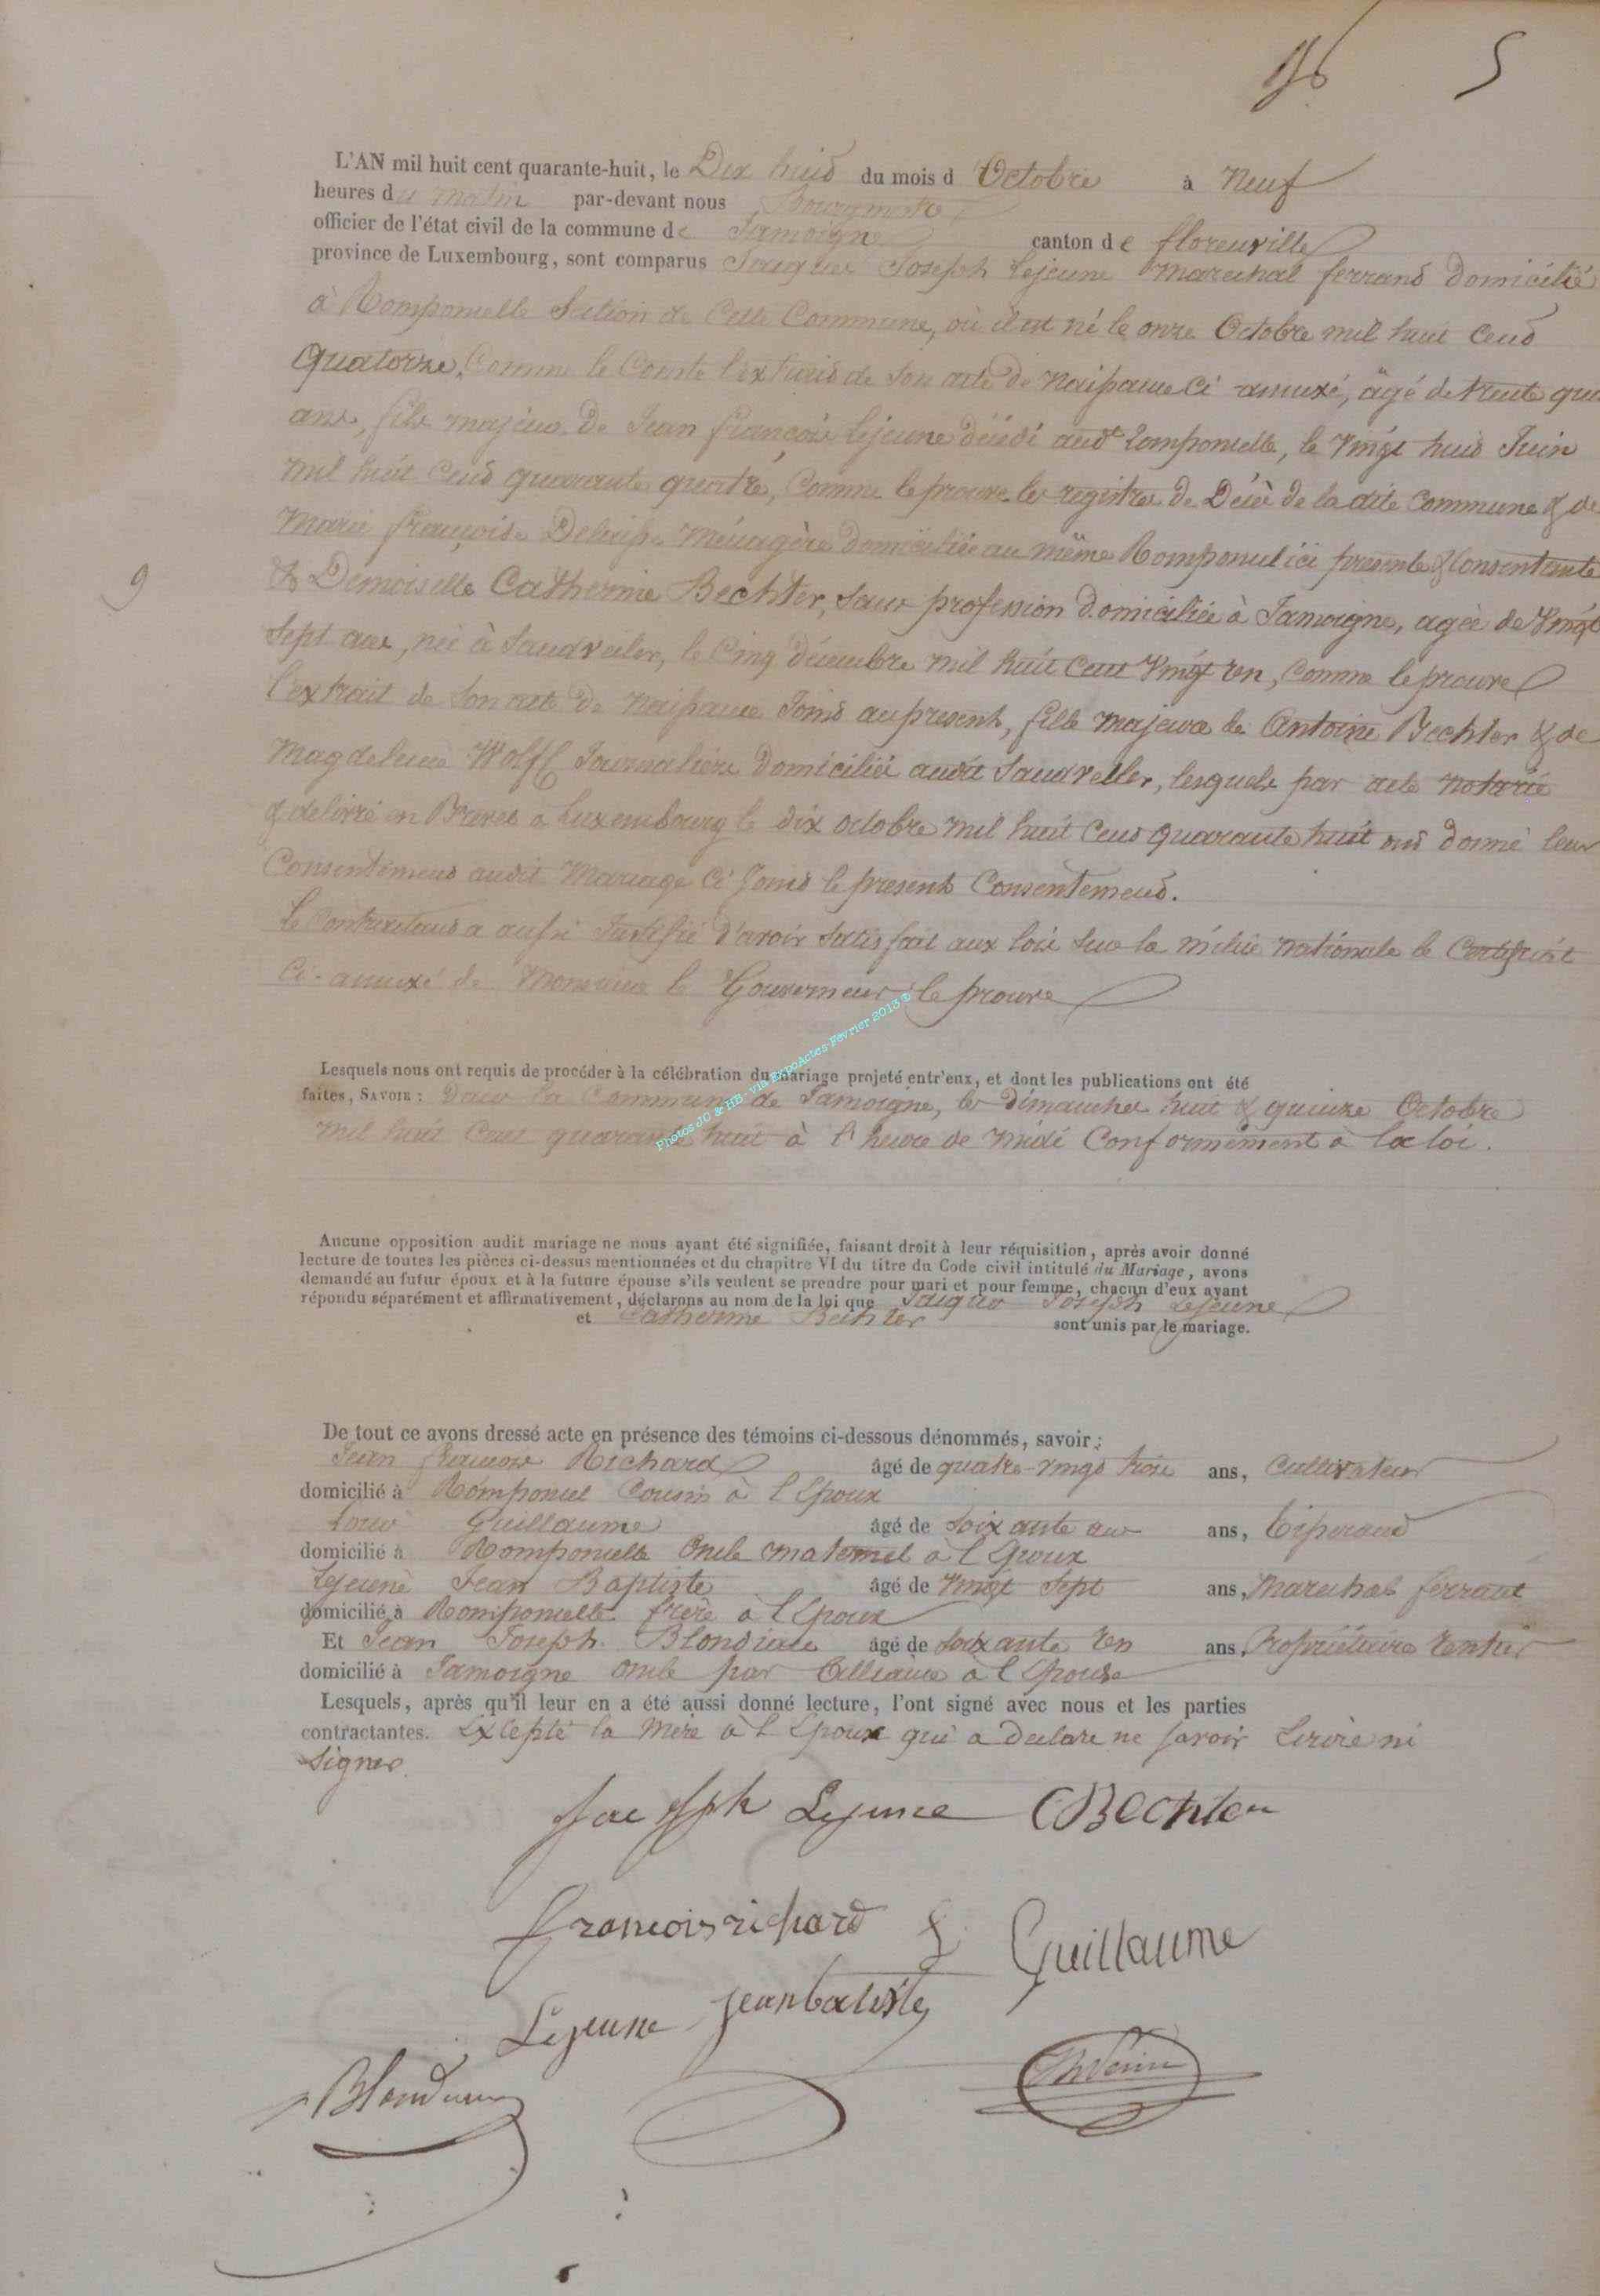 5
L'AN mil huit cent quarante-huit, le Dix huit du mois d'Octobre à Neuf
heures du matin par-devant nous Bourgmestre
officier de l'état civil de la commune de Jamoigne canton de florenville
province de Luxembourg, sont comparus Jacques Joseph Lejeune Marechal ferrand domicilié
à Romponcelle Section de Cette Commune, où il est né le onze Octobre mil huit Cend
Quatorze, Comme le Conste l'extraid de son acte de Naissance ci-annexé, âgé de trente qua
ans, fils majeur de Jean françois Lejeune décédé audt Romponcelle, le Vingt huid Juin
mil huit Cend quarante quatre, Comme le prouve les registres de Décès de la dite Commune & de
Marie françoise Ménagère domiciliée au même Romponcel ici presente & Consentante
& Demoiselle Catherine Bechter, Sans profession domiciliée à Jamoigne, agée de Vingt
9
Sept ans, née à Sandveiler, le Cinq décembre mil huit Cent Vingt Un, Comme le prouve
l'extrait de Son acte de Naissance Joind au present, fille Majeure de Antoine Bechter & de
Magdeleine Wolff Journaliers domiciliés audit Sandveller, lesquels par acte notarié
& delivré en Brevet a Luxembourg le dix octobre mil huit Cend quarante huit ond donné leur
Consentemend audit Mariage Ci Joind le present Consentemend.
Le Contractand a aussi Justifié d'avoir Satisfait aux lois Sur la milice nationale le Certificat
Ci-annexé de Monsieur le Gouverneur le prouve
Lesquels nous ont requis de procéder à la célébration du mariage projeté entr'eux, et dont les publications ont été
faites, SAVOIR : Dans la Commune de Jamoigne, les dimanches huit & quinze Octobre
mil huit Cent quarante huit à l'heure de Midi Conformément à la loi.
Photos JC & HB - via ExpoActes-Février 2013 ©
Aucune opposition audit mariage ne nous ayant été signifiée, faisant droit à leur réquisition, après avoir donné
lecture de toutes les pièces ci-dessus mentionnées et du chapitre VI du titre du Code civil intitulé du Mariage, avons
demandé au futur époux et à la future épouse s'ils veulent se prendre pour mari et pour femme, chacun d'eux ayant
répondu séparément et affirmativement, déclarons au nom de la loi que Jacques Joseph Lejeune
et Catherine Bechter sont unis par le mariage.
De tout ce avons dressé acte en présence des témoins ci-dessous dénommés, savoir :
Jean françois Richard âgé de quatre-vingt trois ans, Cultivateur
domicilié à Romponcel Cousin à l'Epoux
Guillaume âgé de Soixante ans ans, Tisserand
domicilié à Romponcelle Oncle maternel à l'Epoux
Lejeune Jean Baptiste âgé de Vingt Sept ans, Marechal ferrant
domicilié à Romponcelle frère à l'Epoux
Et Jean Joseph Blondiau âgé de Soixante Un ans, Propriétaire Rentier
domicilié à Jamoigne Oncle par Alliance à l'Epouse
Lesquels, après qu'il leur en a été aussi donné lecture, l'ont signé avec nous et les parties
contractantes. Excepté la Mère à l'Epoux qui a declare ne savoir Ecrire ni
Signer.
Joseph Lejeune CBechter
francois richard Guillaume
Lejeune jeanbatiste
Blondiau